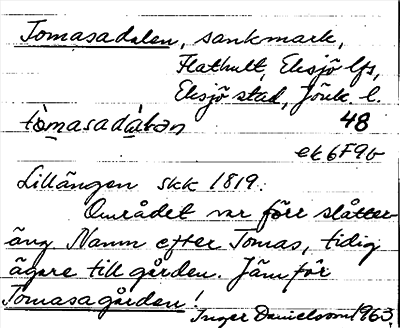 Tomasadalen, sankmark,
Flathult, Eksjö lfs,
Eksjö stad, Jönk. l.
tòmasadàʟən 48
ek 6F9b
Lillängen skk 1819.
Området var förr slåtter-
äng Namn efter Tomas, tidig
ägare till gården. Jämför
Tomasagården!
Inger Danielsson 1963